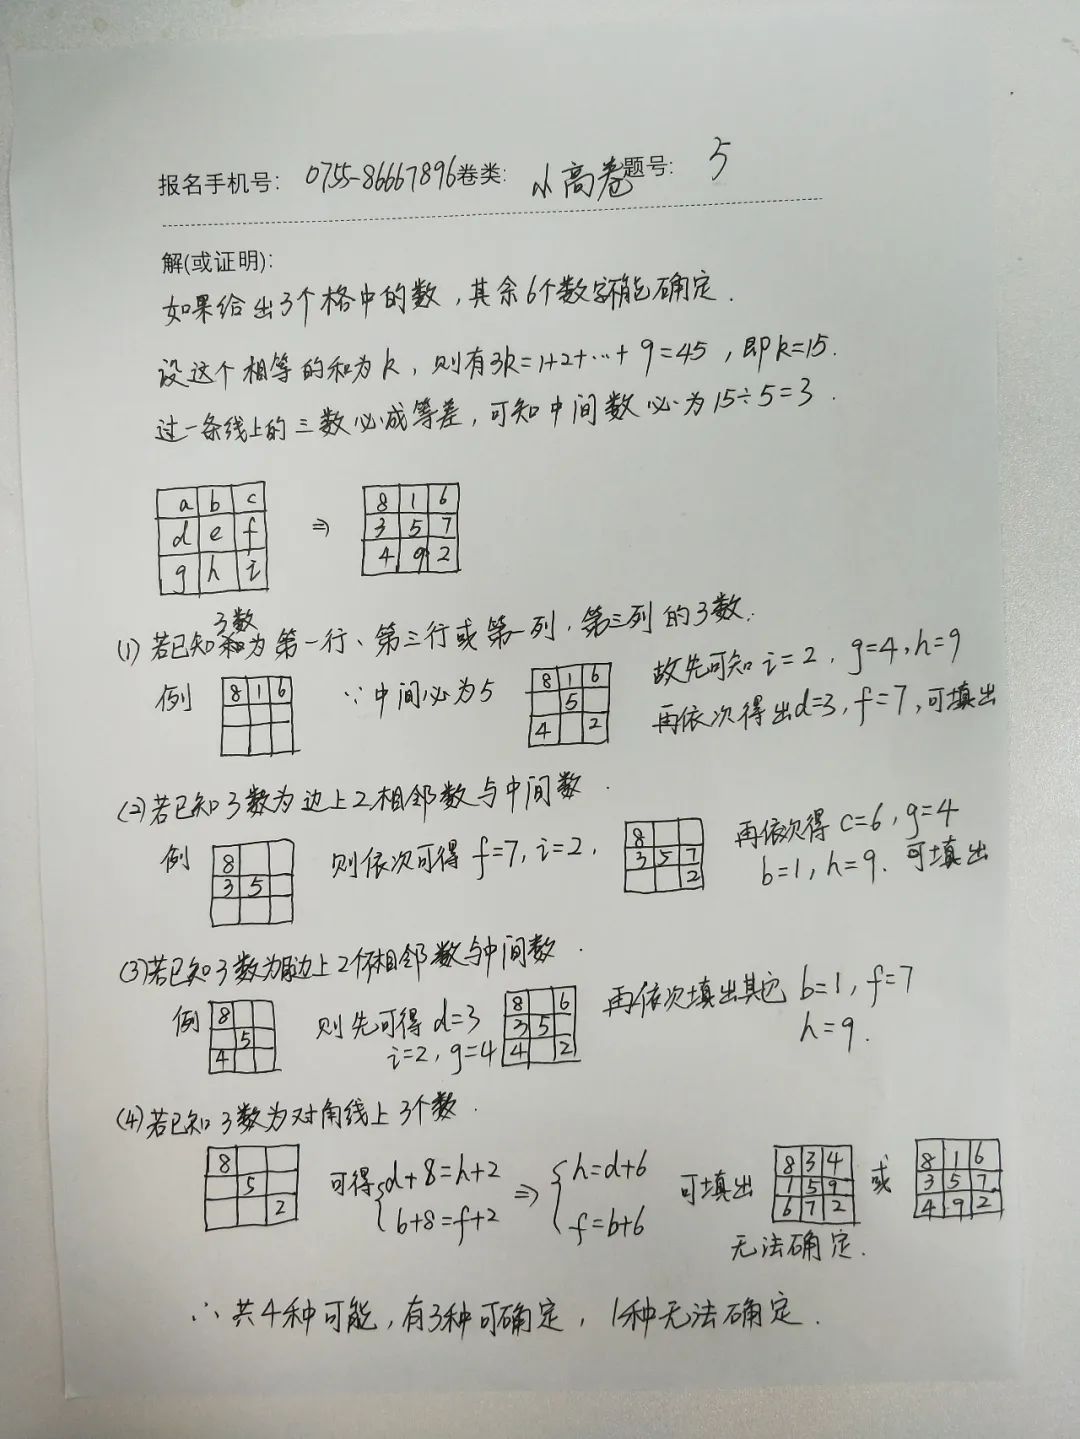 报名手机号: 0755-86667896 卷类: 小高卷 题号: 5
解(或证明):
如果给出3个格中的数,其余6个数字不能确定.
设这个相等的和为k,则有3k=1+2+…+9=45,即k=15.
过一条线上的三数必成等差,可知中间数必为15÷5=3.
a b c
d e f
g h i
⇒
8 1 6
3 5 7
4 9 2
(1)若已知3数为第一行、第三行或第一列、第三列的3数.
例
8 1 6
∵中间必为5
8 1 6
5
4 2
故先可知i=2,g=4,h=9
再依次得出d=3,f=7,可填出
(2)若已知3数为边上2相邻数与中间数.
例
8
3 5
则依次可得f=7,i=2,
8
3 5 7
2
再依次得c=6,g=4
b=1,h=9.可填出
(3)若已知3数为边上2个相邻数与中间数.
例
8
5
4
则先可得d=3
i=2,g=4
8 6
3 5
4 2
再依次填出其它b=1,f=7
h=9.
(4)若已知3数为对角线上3个数.
8
5
2
可得{d+8=h+2
b+8=f+2
⇒{h=d+6
f=b+6
可填出
8 3 4
1 5 9
6 7 2
或
8 1 6
3 5 7
4 9 2
无法确定.
∴共4种可能,有3种可确定,1种无法确定.